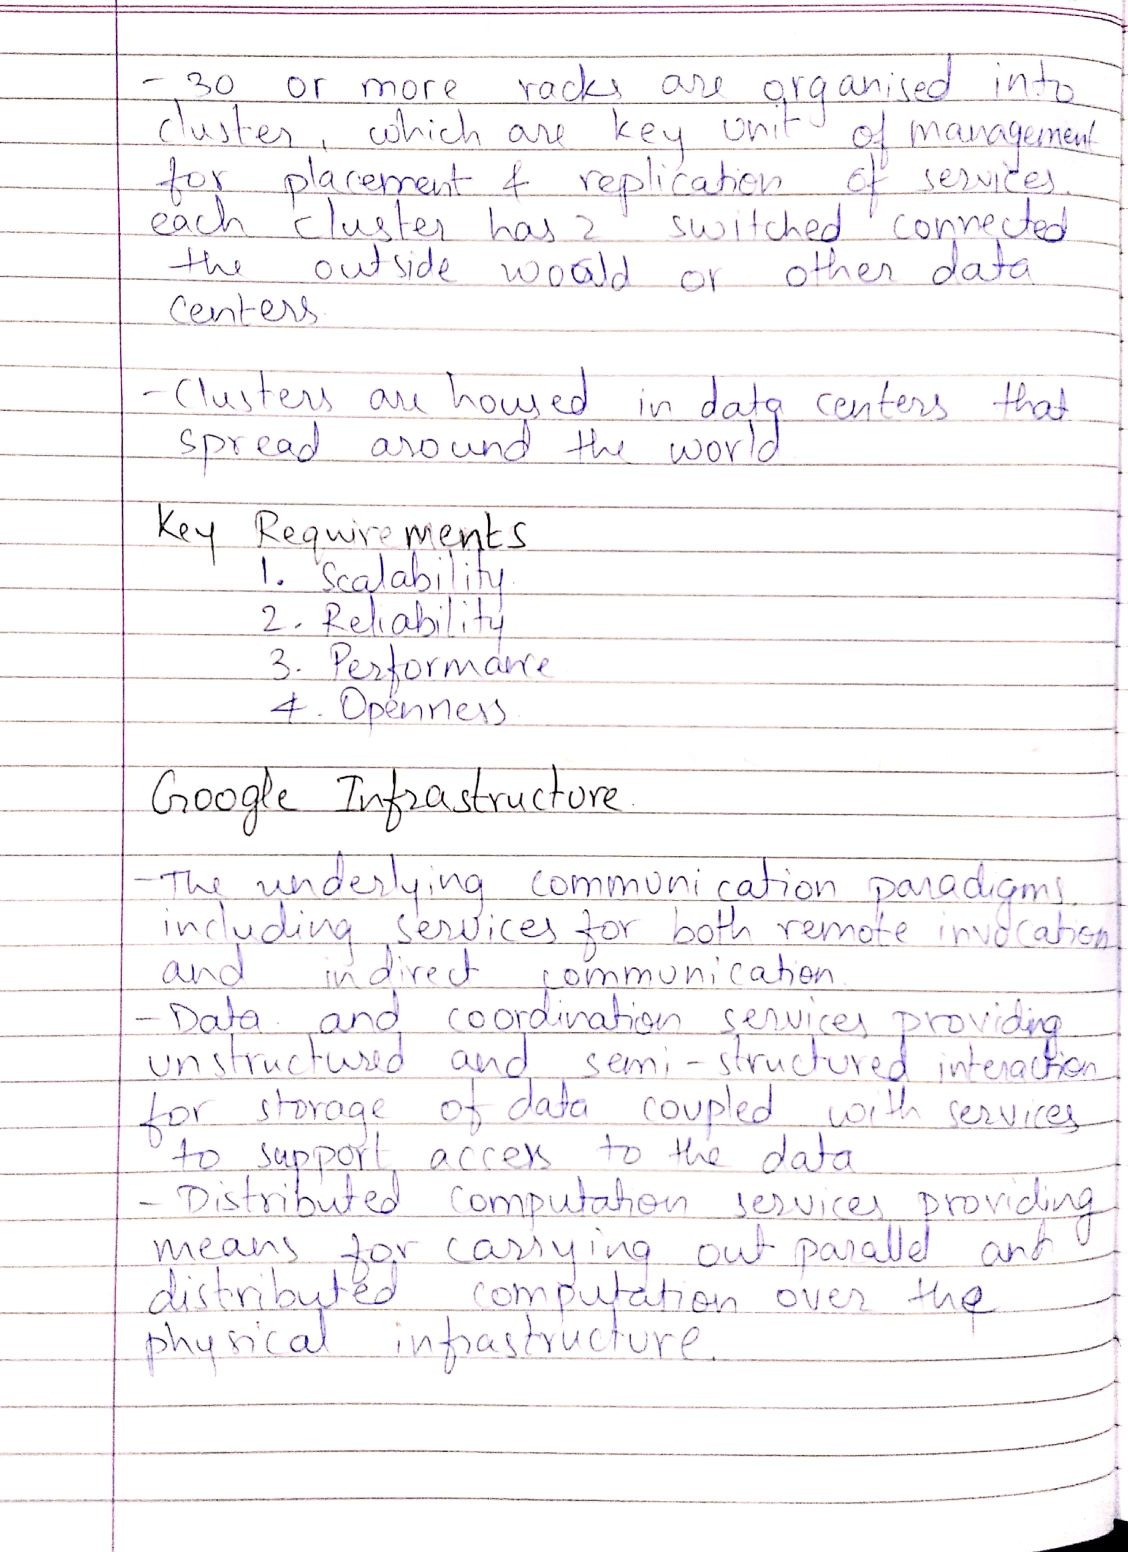 - 30 or more racks are organised into
cluster, which are key unit of management
for placement & replication of services.
each cluster has 2 switched connected
the outside would or other data
centers.
- Clusters are housed in data centers that
spread around the world
Key Requirements
1. Scalability.
2. Reliability
3. Performance
4. Openness.
Google Infrastructure.
- The underlying communication paradigms.
including services for both remote invocation
and indirect communication.
- Data and coordination services providing
unstructured and semi-structured interaction
for storage of data coupled with services
to support access to the data
- Distributed computation services providing
means for carrying out parallel and
distributed computation over the
physical infrastructure.